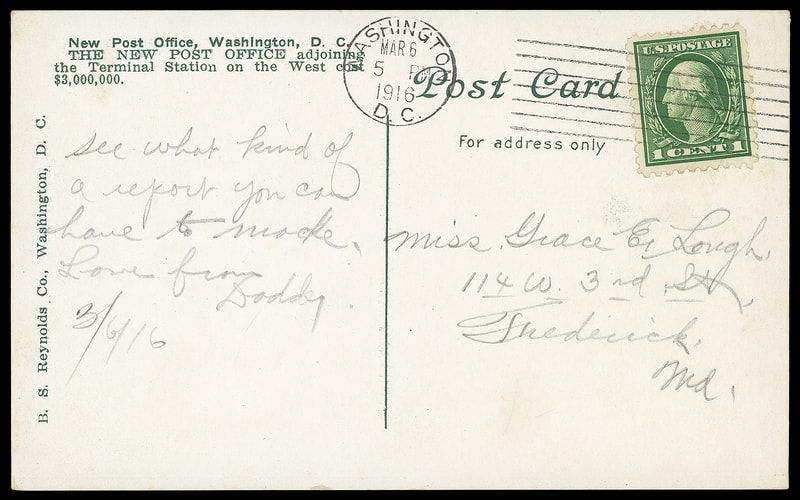 New Post Office, Washington, D. C.
THE NEW POST OFFICE adjoining
the Terminal Station on the West cost
$3,000,000.
WASHINGTON
MAR 6
5 PM
1916
D. C.
Post Card
For address only
U.S. POSTAGE
1 CENT 1
B. S. Reynolds Co., Washington, D. C.
see what kind of
a report you can
have to make.
Love from
Daddy.
3/6/16
Miss. Grace E. Lough.
114 W. 3rd St,
Frederick,
Md.